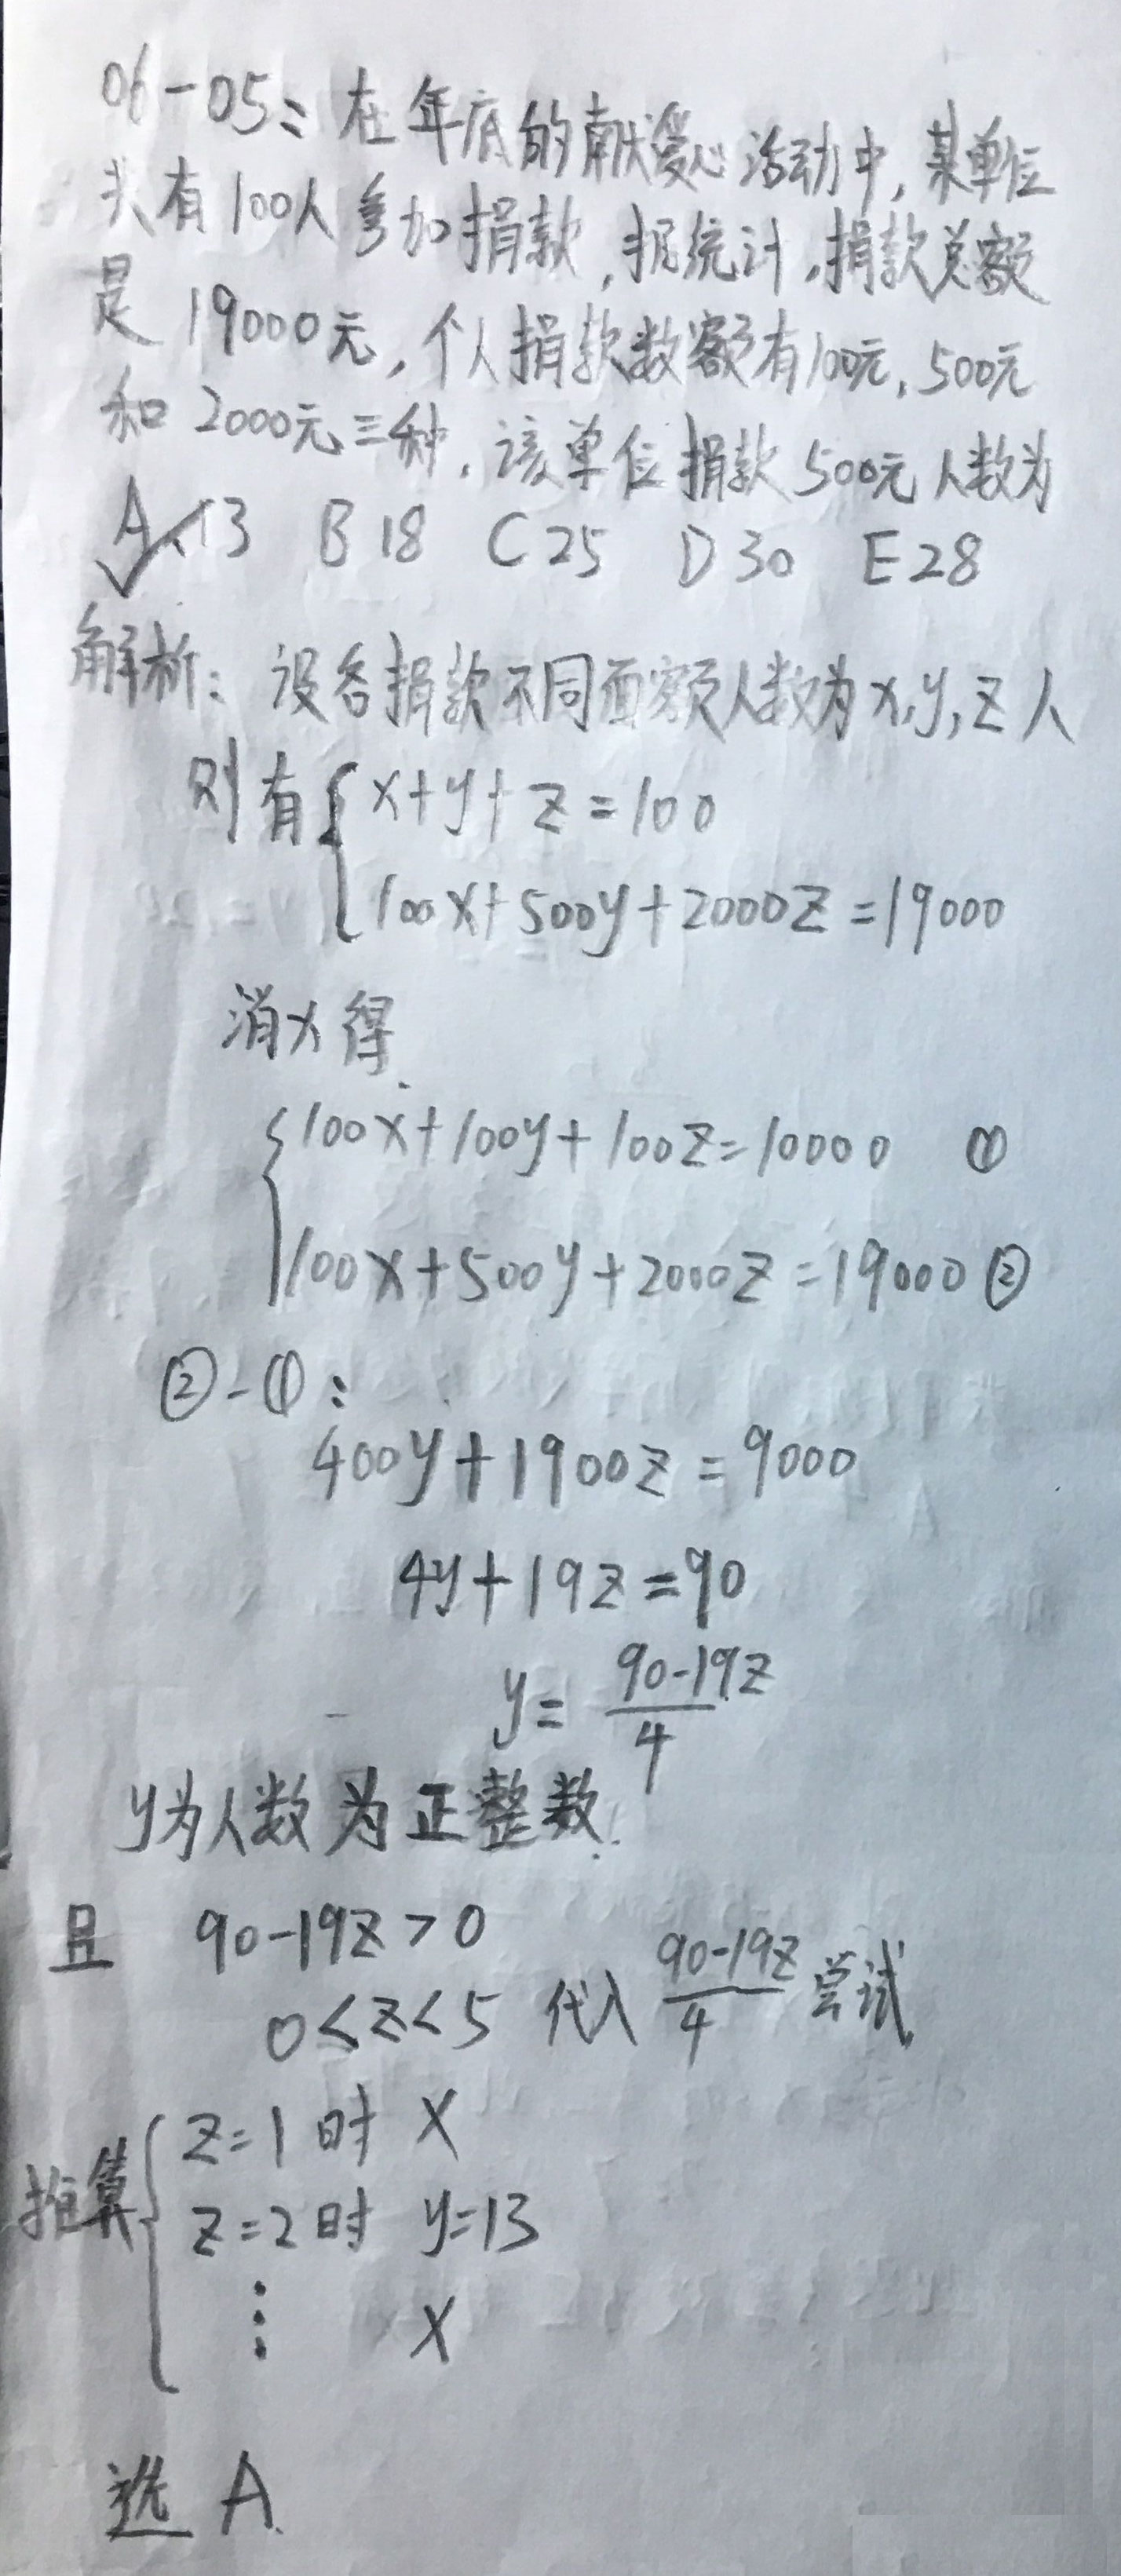 06-05: 在年底的献爱心活动中,某单位
共有100人参加捐款,据统计,捐款总额
是 19000元,个人捐款数额有100元,500元
和 2000元三种.该单位捐款500元人数为
A、13 B 18 C 25 D 30 E 28
解析: 设各捐款不同面额人数为x,y,z人
则有{x+y+z=100
100x+500y+2000z=19000
消x得.
{100x+100y+100z=10000 ①
100x+500y+2000z=19000 ②
②-①:
400y+1900z=9000
4y+19z=90
y= 90-19z/4
y为人数为正整数.
且 90-19z>0
0<z<5 代入 90-19z/4 尝试
推算{z=1时 X
z=2时 y=13
⋮ X
选 A.